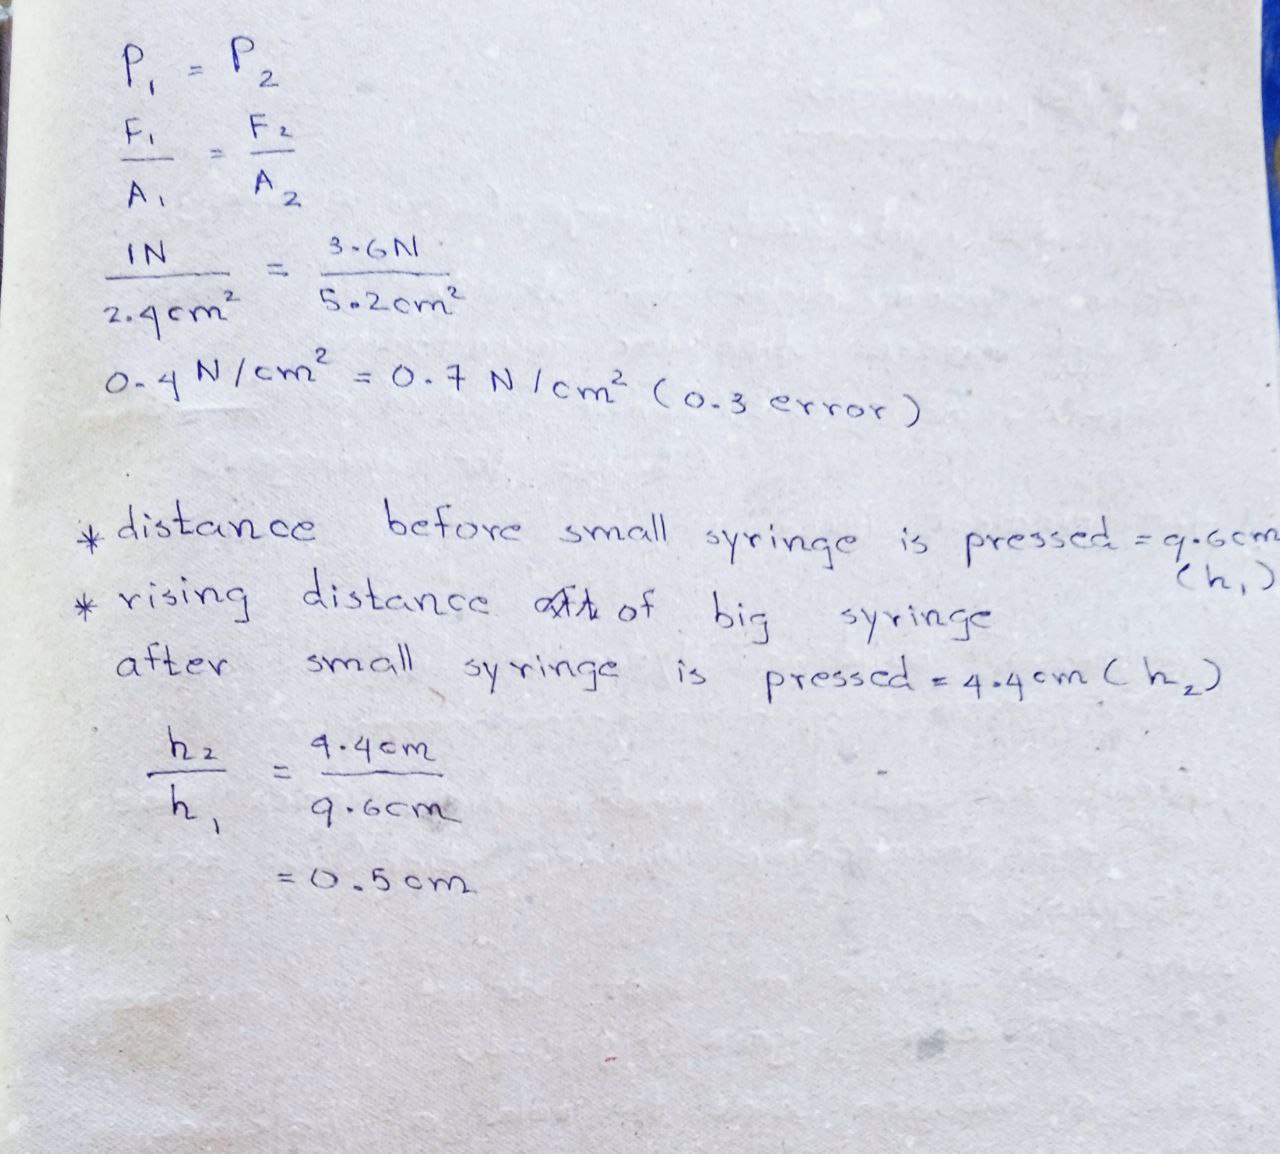 P₁ = P₂
F₁/A₁ = F₂/A₂
1N/2.4cm² = 3.6N/5.2cm²
0.4 N/cm² = 0.7 N/cm² (0.3 error)
* distance before small syringe is pressed = 9.6cm
(h₁)
* rising distance of big syringe
after small syringe is pressed = 4.4cm (h₂)
h₂/h₁ = 4.4cm/9.6cm
= 0.5cm